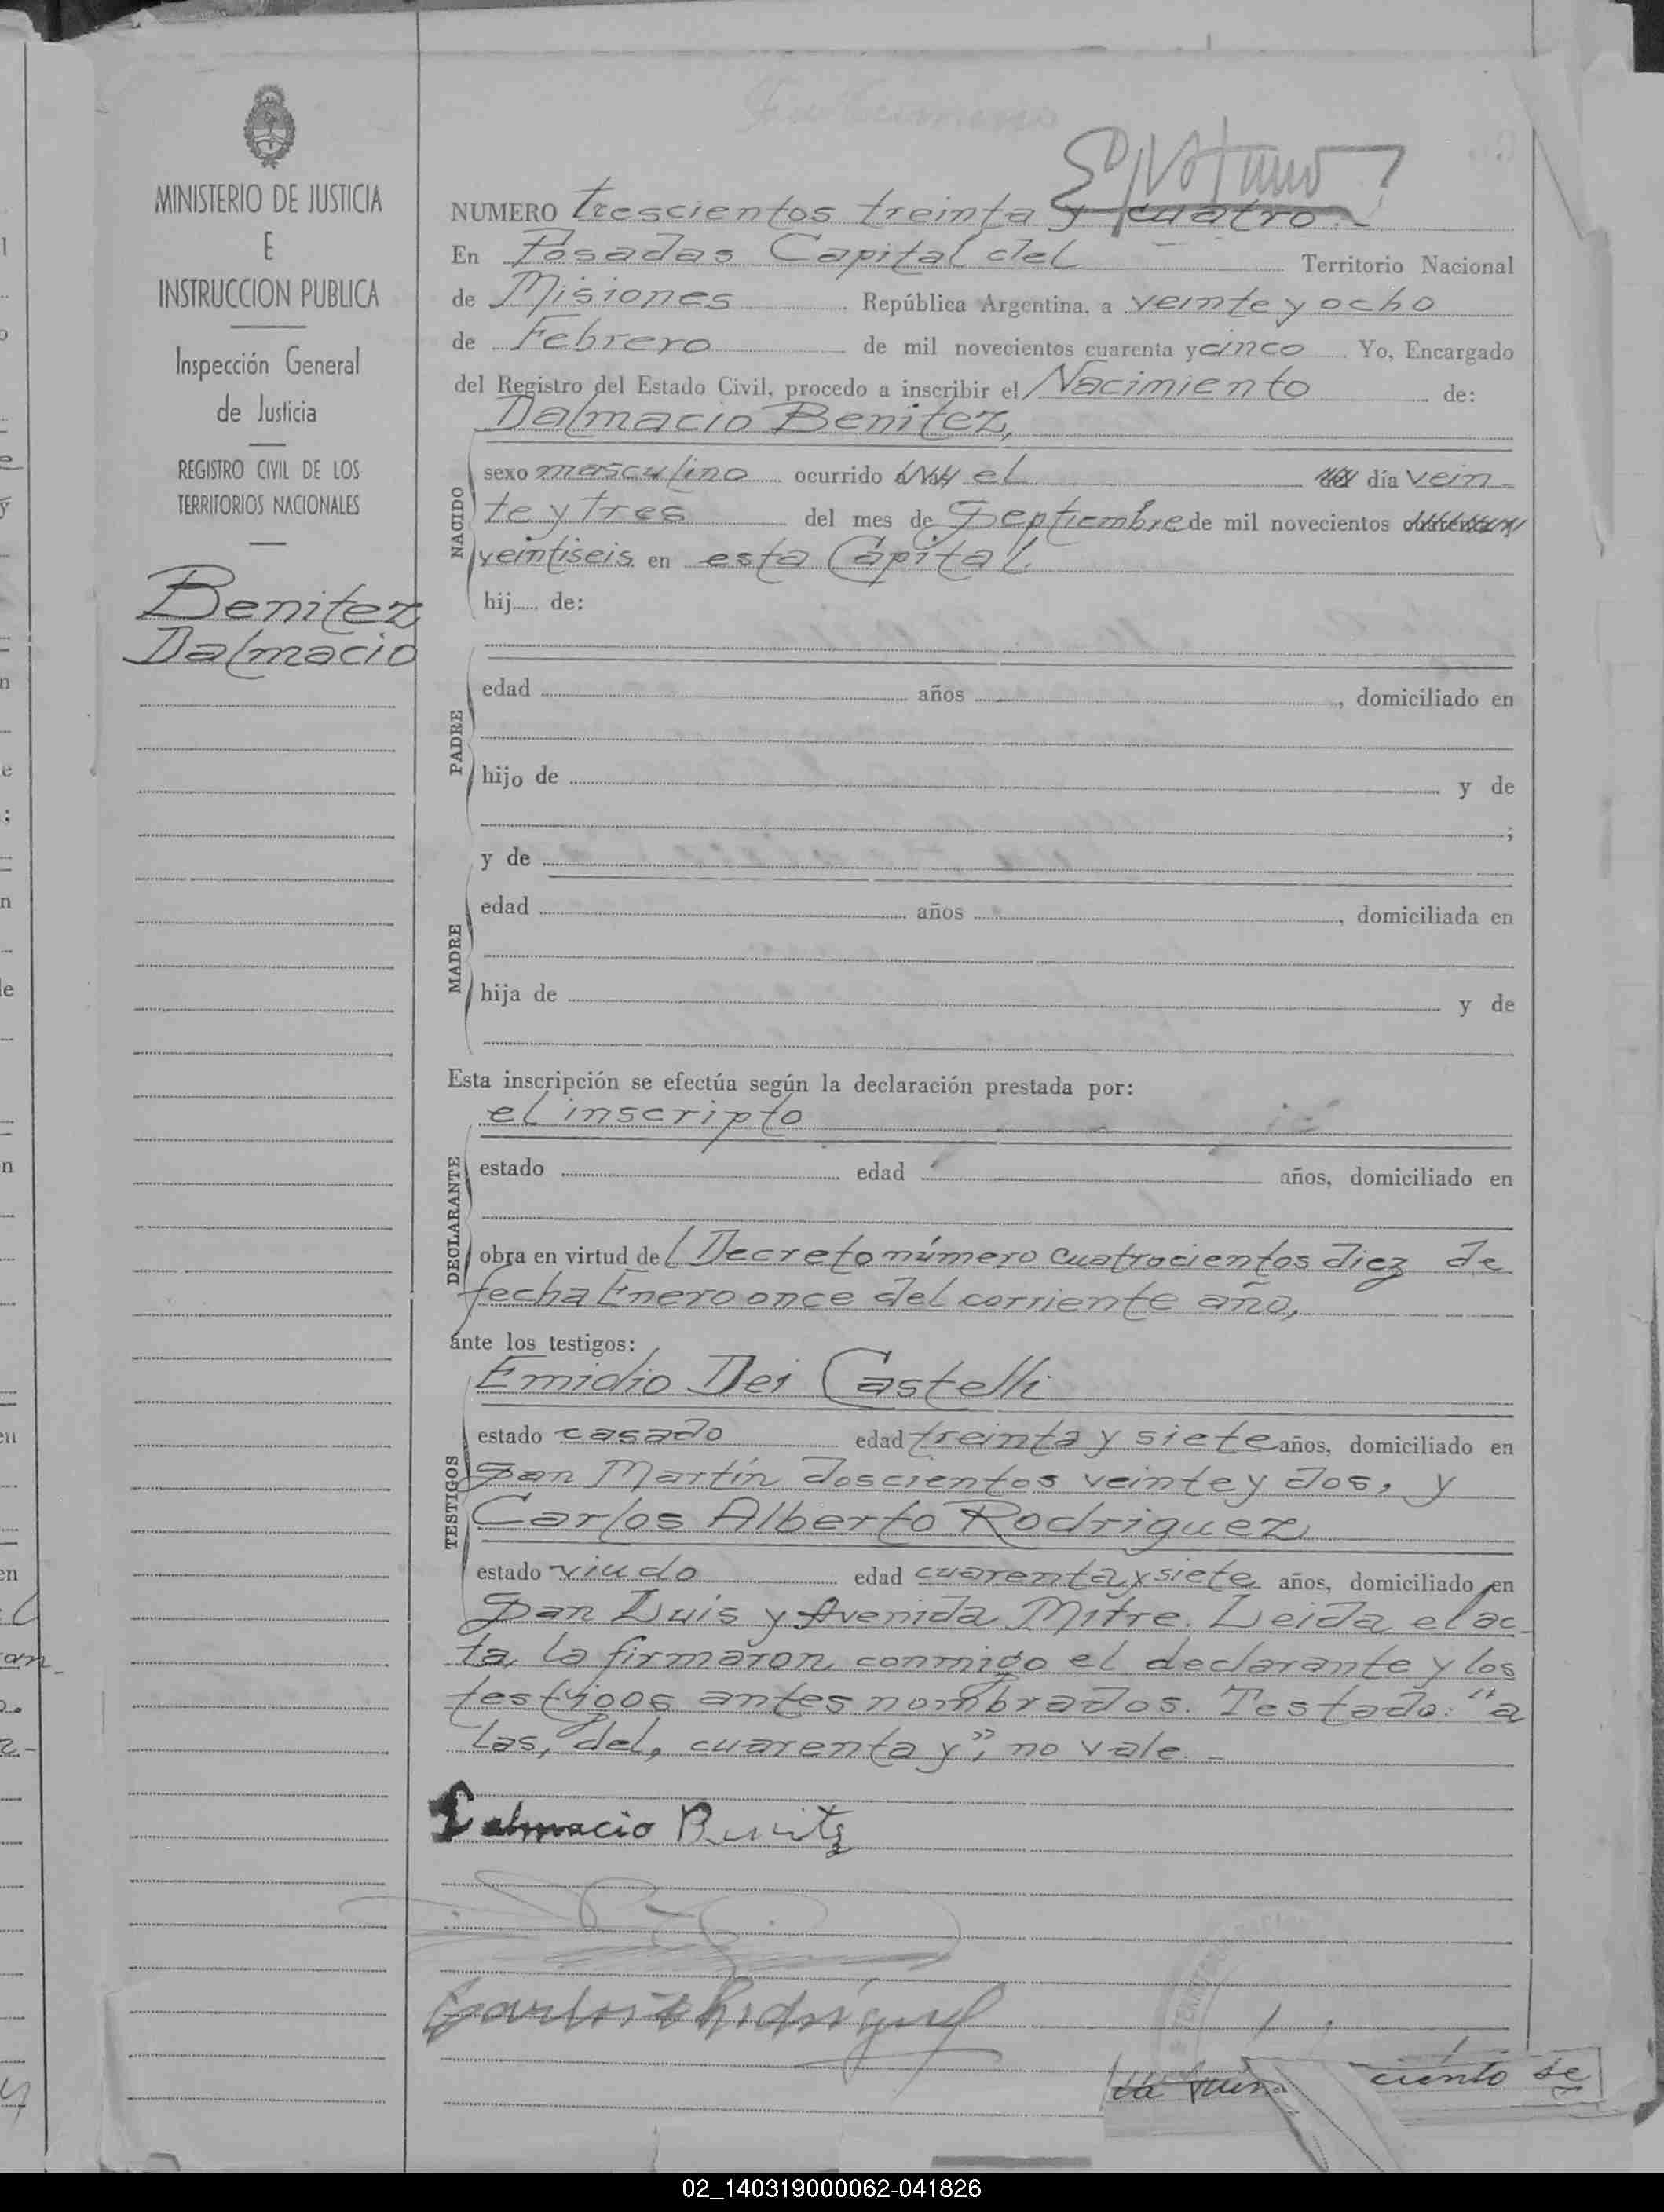 MINISTERIO DE JUSTICIA
E
INSTRUCCION PUBLICA
Inspección General
de Justicia
REGISTRO CIVIL DE LOS
TERRITORIOS NACIONALES
Benitez
Dalmacio
NUMERO trescientos treinta y cuatro.-
En Posadas Capital del Territorio Nacional
de Misiones República Argentina, a veinte y ocho
de Febrero de mil novecientos cuarenta y cinco Yo, Encargado
del Registro del Estado Civil, procedo a inscribir el Nacimiento de:
Dalmacio Benitez,
NACIDO
sexo masculino ocurrido el día vein
te y tres del mes de Septiembre de mil novecientos
veintiseis en esta Capital
hij..... de:
PADRE
edad años , domiciliado en
hijo de y de
;
y de
MADRE
edad años , domiciliada en
hija de y de
Esta inscripción se efectúa según la declaración prestada por:
el inscripto
DECLARANTE
estado edad años, domiciliado en
obra en virtud del Decreto número cuatrocientos diez de
fecha Enero once del corriente año,
ante los testigos:
Emidio Dei Castelli
TESTIGOS
estado casado edad treinta y siete años, domiciliado en
San Martín doscientos veinte y dos, y
Carlos Alberto Rodriguez
estado viudo edad cuarenta y siete años, domiciliado en
San Luis y Avenida Mitre. Leida el ac-
ta la firmaron conmigo el declarante y los
testigos antes nombrados. Testado: "a
las, del, cuarenta y", no vale.-
Dalmacio Benitz
ciento se
02_140319000062-041826